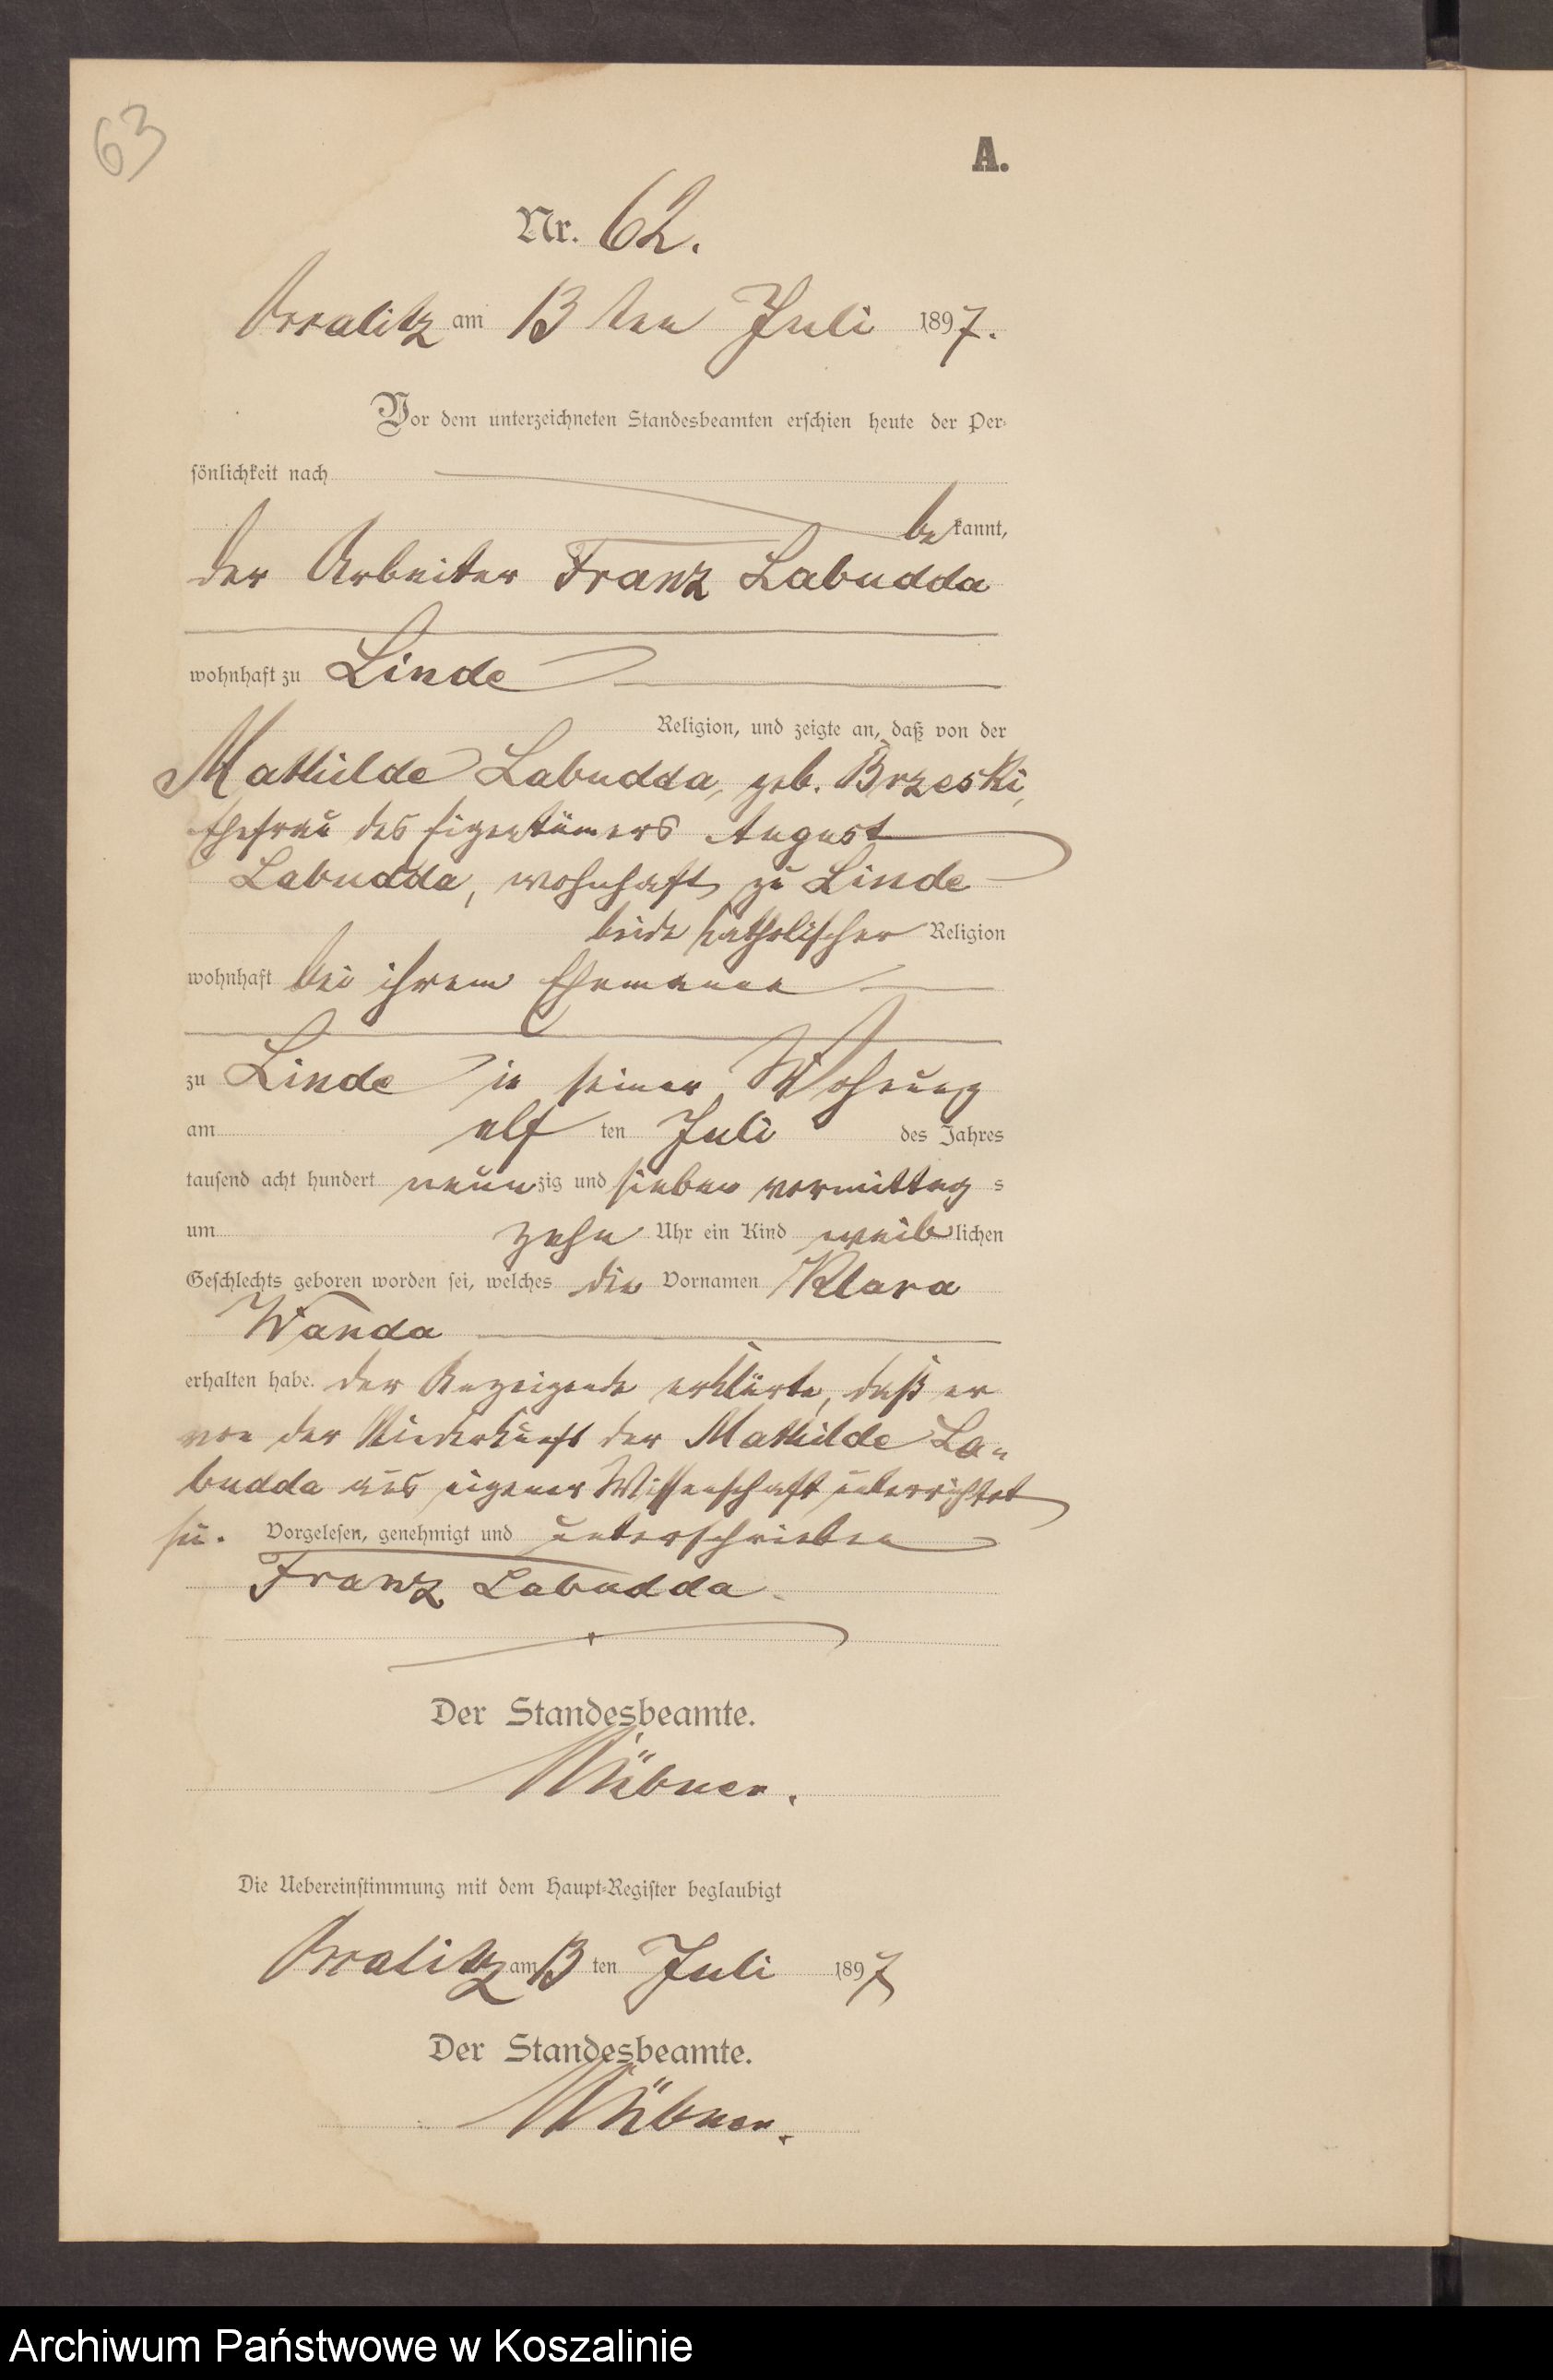 63
A.
Nr. 62.
am 13 ten Juli 1897.
Vor dem unterzeichneten Standesbeamten erschien heute der Per-
sönlichkeit nach
be kannt,
der Arbeiter Franz Labudda
wohnhaft zu Linde
Religion, und zeigte an, daß von der
Mathilde Labudda, geb. Brzeski,
Ehefrau des Eigentümers August
Labudda, wohnhaft zu Linde
beide katholischer Religion
wohnhaft bei ihrem Ehemanne
zu Linde in seiner Wohnung
am elf ten Juli des Jahres
tausend acht hundert neun zig und sieben vormittag s
um zehn Uhr ein Kind weib lichen
Geschlechts geboren worden sei, welches die Vornamen Klara
Wanda
erhalten habe. Der Anzeigende erklärte, daß er
von der Niederkunft der Mathilde La-
budda aus eigener Wissenschaft unterrichtet
sei. Vorgelesen, genehmigt und unterschrieben
Franz Labudda
Der Standesbeamte.
Die Uebereinstimmung mit dem Haupt-Register beglaubigt
am 13 ten Juli 1897
Der Standesbeamte.
Archiwum Państwowe w Koszalinie